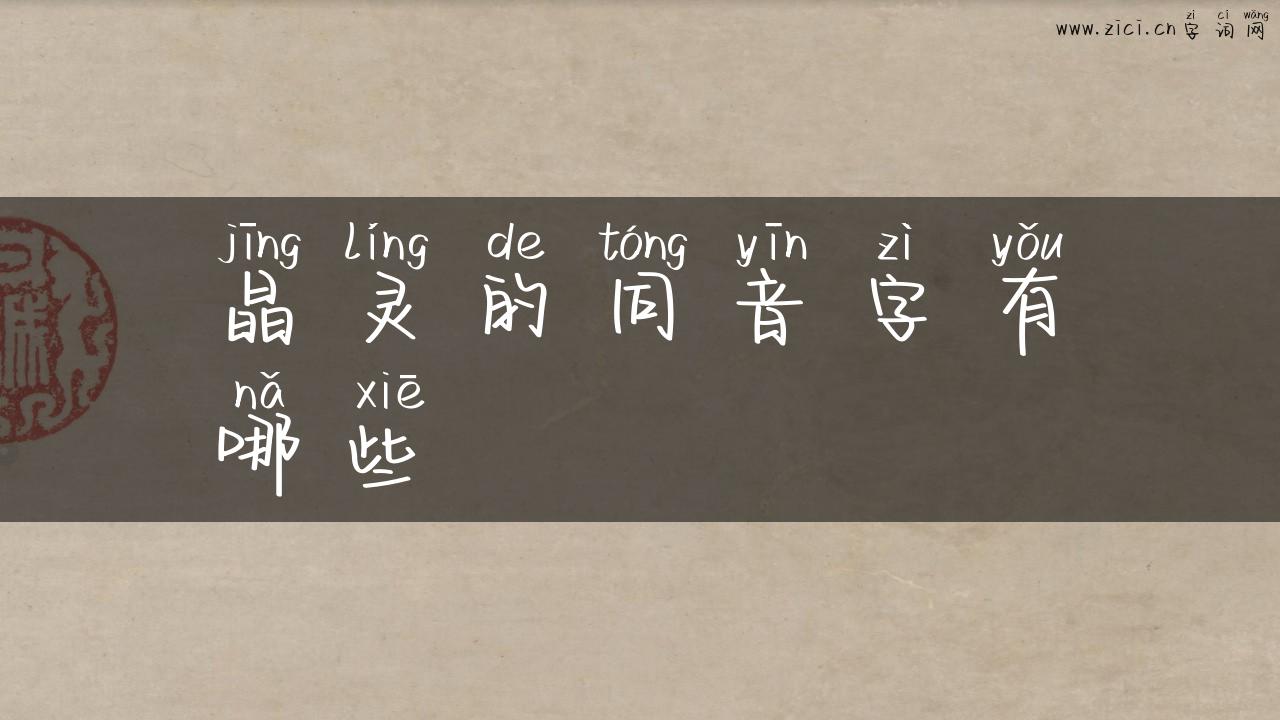 zì cí wǎng
www.zici.cn字词网
jīng líng de tóng yīn zì yǒu
晶灵的同音字有
nǎ xiē
哪些